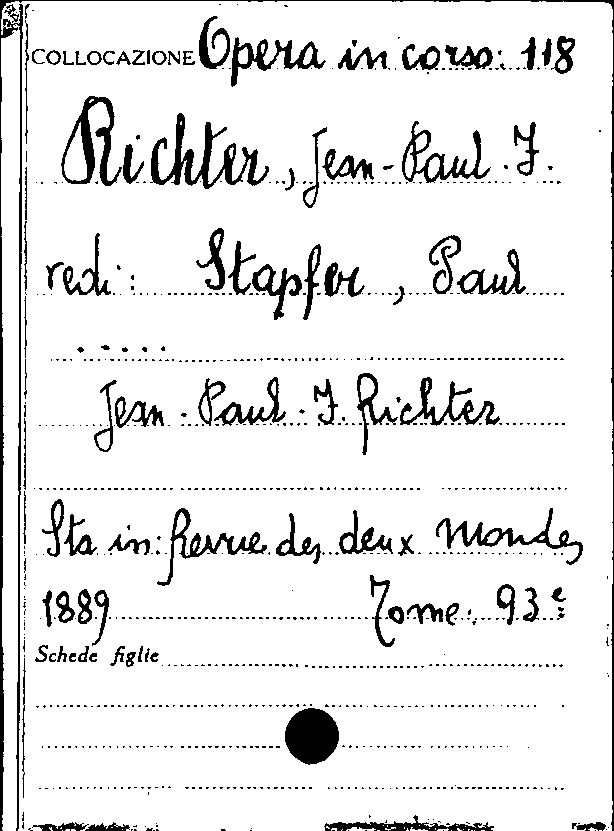 COLLOCAZIONE Opera in corso: 118
Richter, Jean-Paul. F.
vedi: Stapfer, Paul
.....
Jean-Paul. F. Richter
Sta in: Revue des deux Mondes
1889 Tome: 93e
Schede figlie